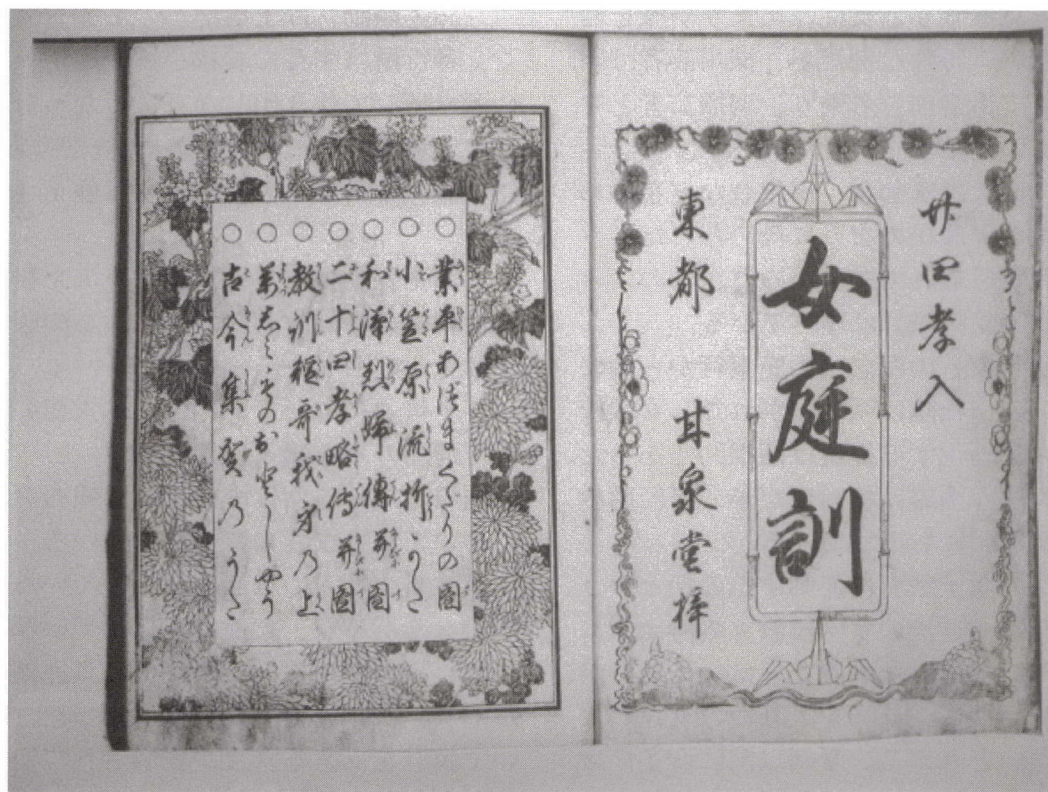 廿四孝入
女庭訓
東都 甘泉堂梓
○業平あづまくだりの圖
○小笠原流折かた
○和漢烈婦傳并圖
○二十四孝略傳并圖
○教訓哥我身乃上
○萬しみものおとしやう
○古今集賀乃うた